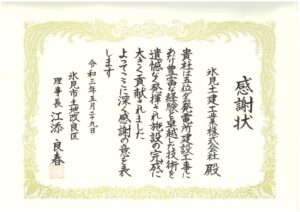 感謝状
氷見土建工業株式会社 殿
貴社は五位ダム発電所建設工事に
あり豊富な経験と卓越した技術を
遺憾なく発揮され施設の完成に
大きく貢献されました
よってここに深く感謝の意を表
します
令和三年五月二十九日
氷見市土地改良区
理事長 江添良春